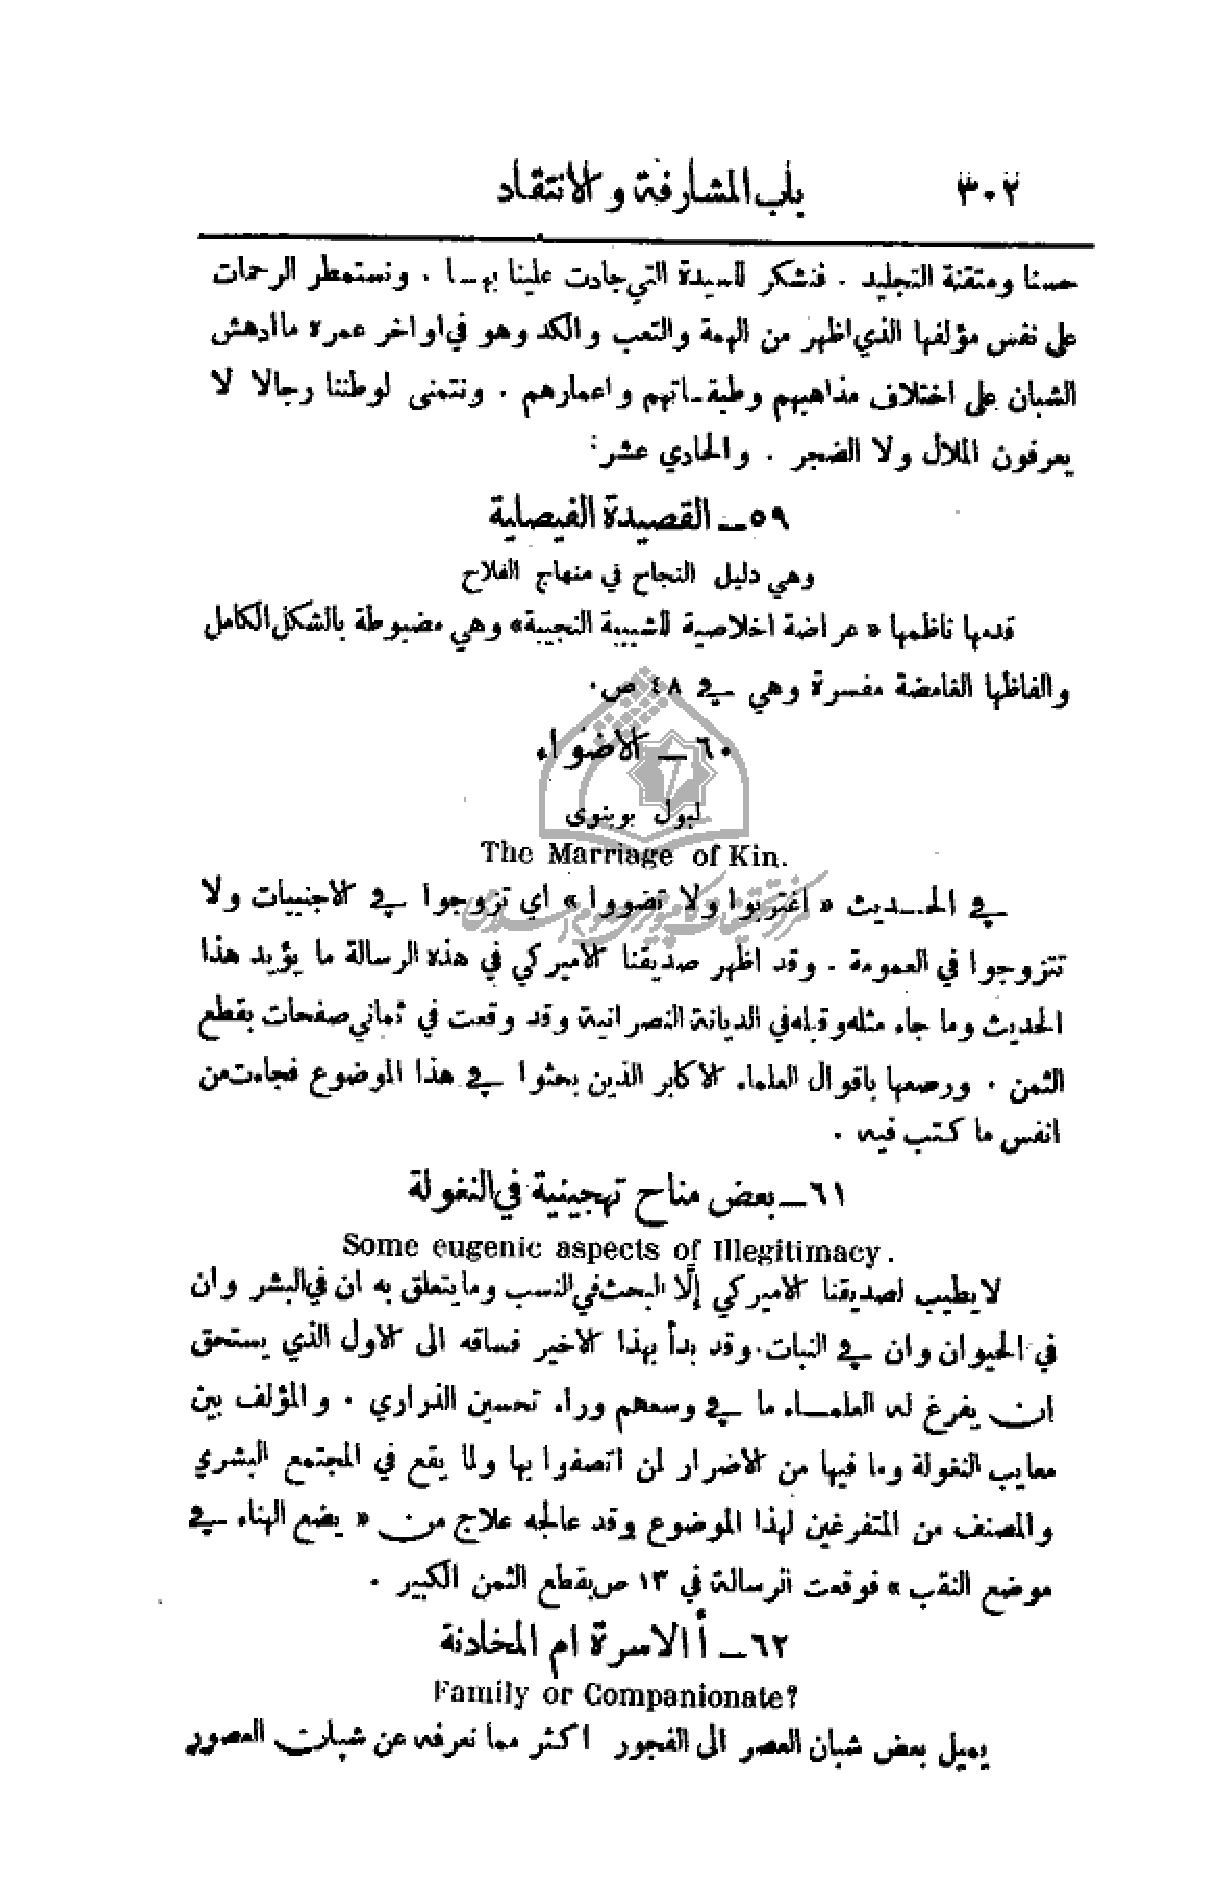 ٣٠٢ باب المشارفة والانتقاد
حسنا ومتقنة التجليد . فنشكر للسيدة التي جادت علينا بهـا . ونستمطر الرحمات
على نفس مؤلفها الذي اظهر من الهمة والتعب والكد وهو في اواخر عمره ما ادهش
الشبان على اختلاف مذاهبهم وطبقـاتهم واعمارهم . ونتمنى لوطننا رجالا لا
يعرفون الملال ولا الضجر . والحادي عشر :
٥٩ـ القصيدة الفيصلية
وهي دليل النجاح في منهاج الفلاح
قدمها ناظمها « عراضة اخلاصية للشبيبة النجيبة» وهي مضبوطة بالشكل الكامل
والفاظها الغامضة مفسرة وهي في ٤٨ ص.
٦٠ ـ الاضواء
لبول بوبنوى
The Marriage of Kin.
في الحـديث « اغتربوا ولا تضووا » اي تزوجوا في الاجنبيات ولا
تتزوجوا في العمومة . وقد اظهر صديقنا الاميركي في هذه الرسالة ما يؤيد هذا
الحديث وما جاء مثله وقبله في الديانة النصرانية وقد وقعت في ثماني صفحات بقطع
الثمن . ورصعها باقوال العلماء الاكابر الذين بحثوا في هذا الموضوع فجاءت من
انفس ما كتب فيه .
٦١ ـ بعض مناح تهجينية في النغولة
Some eugenic aspects of Illegitimacy.
لا يطيب لصديقنا الاميركي إلّا البحث في النسب وما يتعلق به ان في البشر وان
في الحيوان وان في النبات. وقد بدأ بهذا الاخير فساقه الى الاول الذي يستحق
ان يفرغ له العلمـاء ما في وسعهم وراء تحسين الذراري . والمؤلف بين
معايب النغولة وما فيها من الاضرار لمن اتصفوا بها ولما يقع في المجتمع البشري
والمصنف من المتفرغين لهذا الموضوع وقد عالجه علاج من « يضع الهناء في
موضع النقب » فوقعت الرسالة في ١٣ ص بقطع الثمن الكبير .
٦٢ ـ أالاسرة ام المخادنة
Family or Companionate?
يميل بعض شبان العصر الى الفجور اكثر مما نعرفه عن شبان العصور